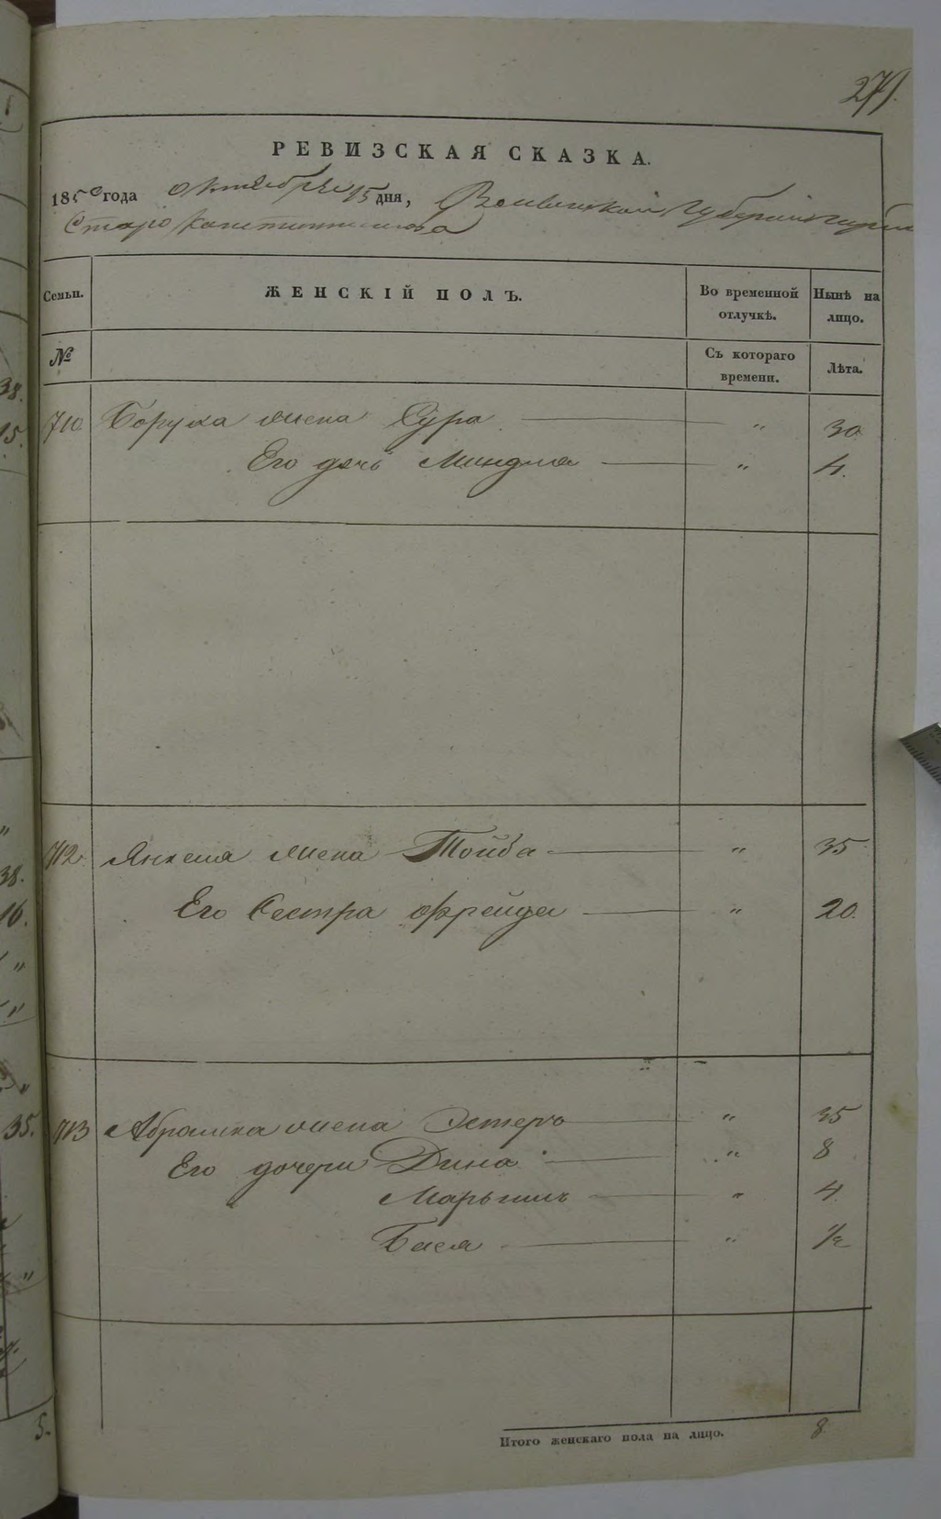 271.
РЕВИЗСКАЯ СКАЗКА.
1850 года октября 15 дня, Волынской Губернии города
Старо Константинова
Семьи. ЖЕНСКІЙ ПОЛЪ. Во временной отлучкѣ. Нынѣ на лицо.
№ Съ котораго времени. Лѣта.
38.
15.
710 Боруха жена Сура " 30
Его дочь Миндля " 4.
"
38.
16.
"
"
712 Янкеля жена Тойба " 35
Его Сестра Фрейда " 20.
"
35.
713 Абрамка жена Эстеръ " 35
Его дочери Дина " 8
Марьимъ " 4
Бася " 1/2
"
5.
Итого женскаго пола на лицо. 8